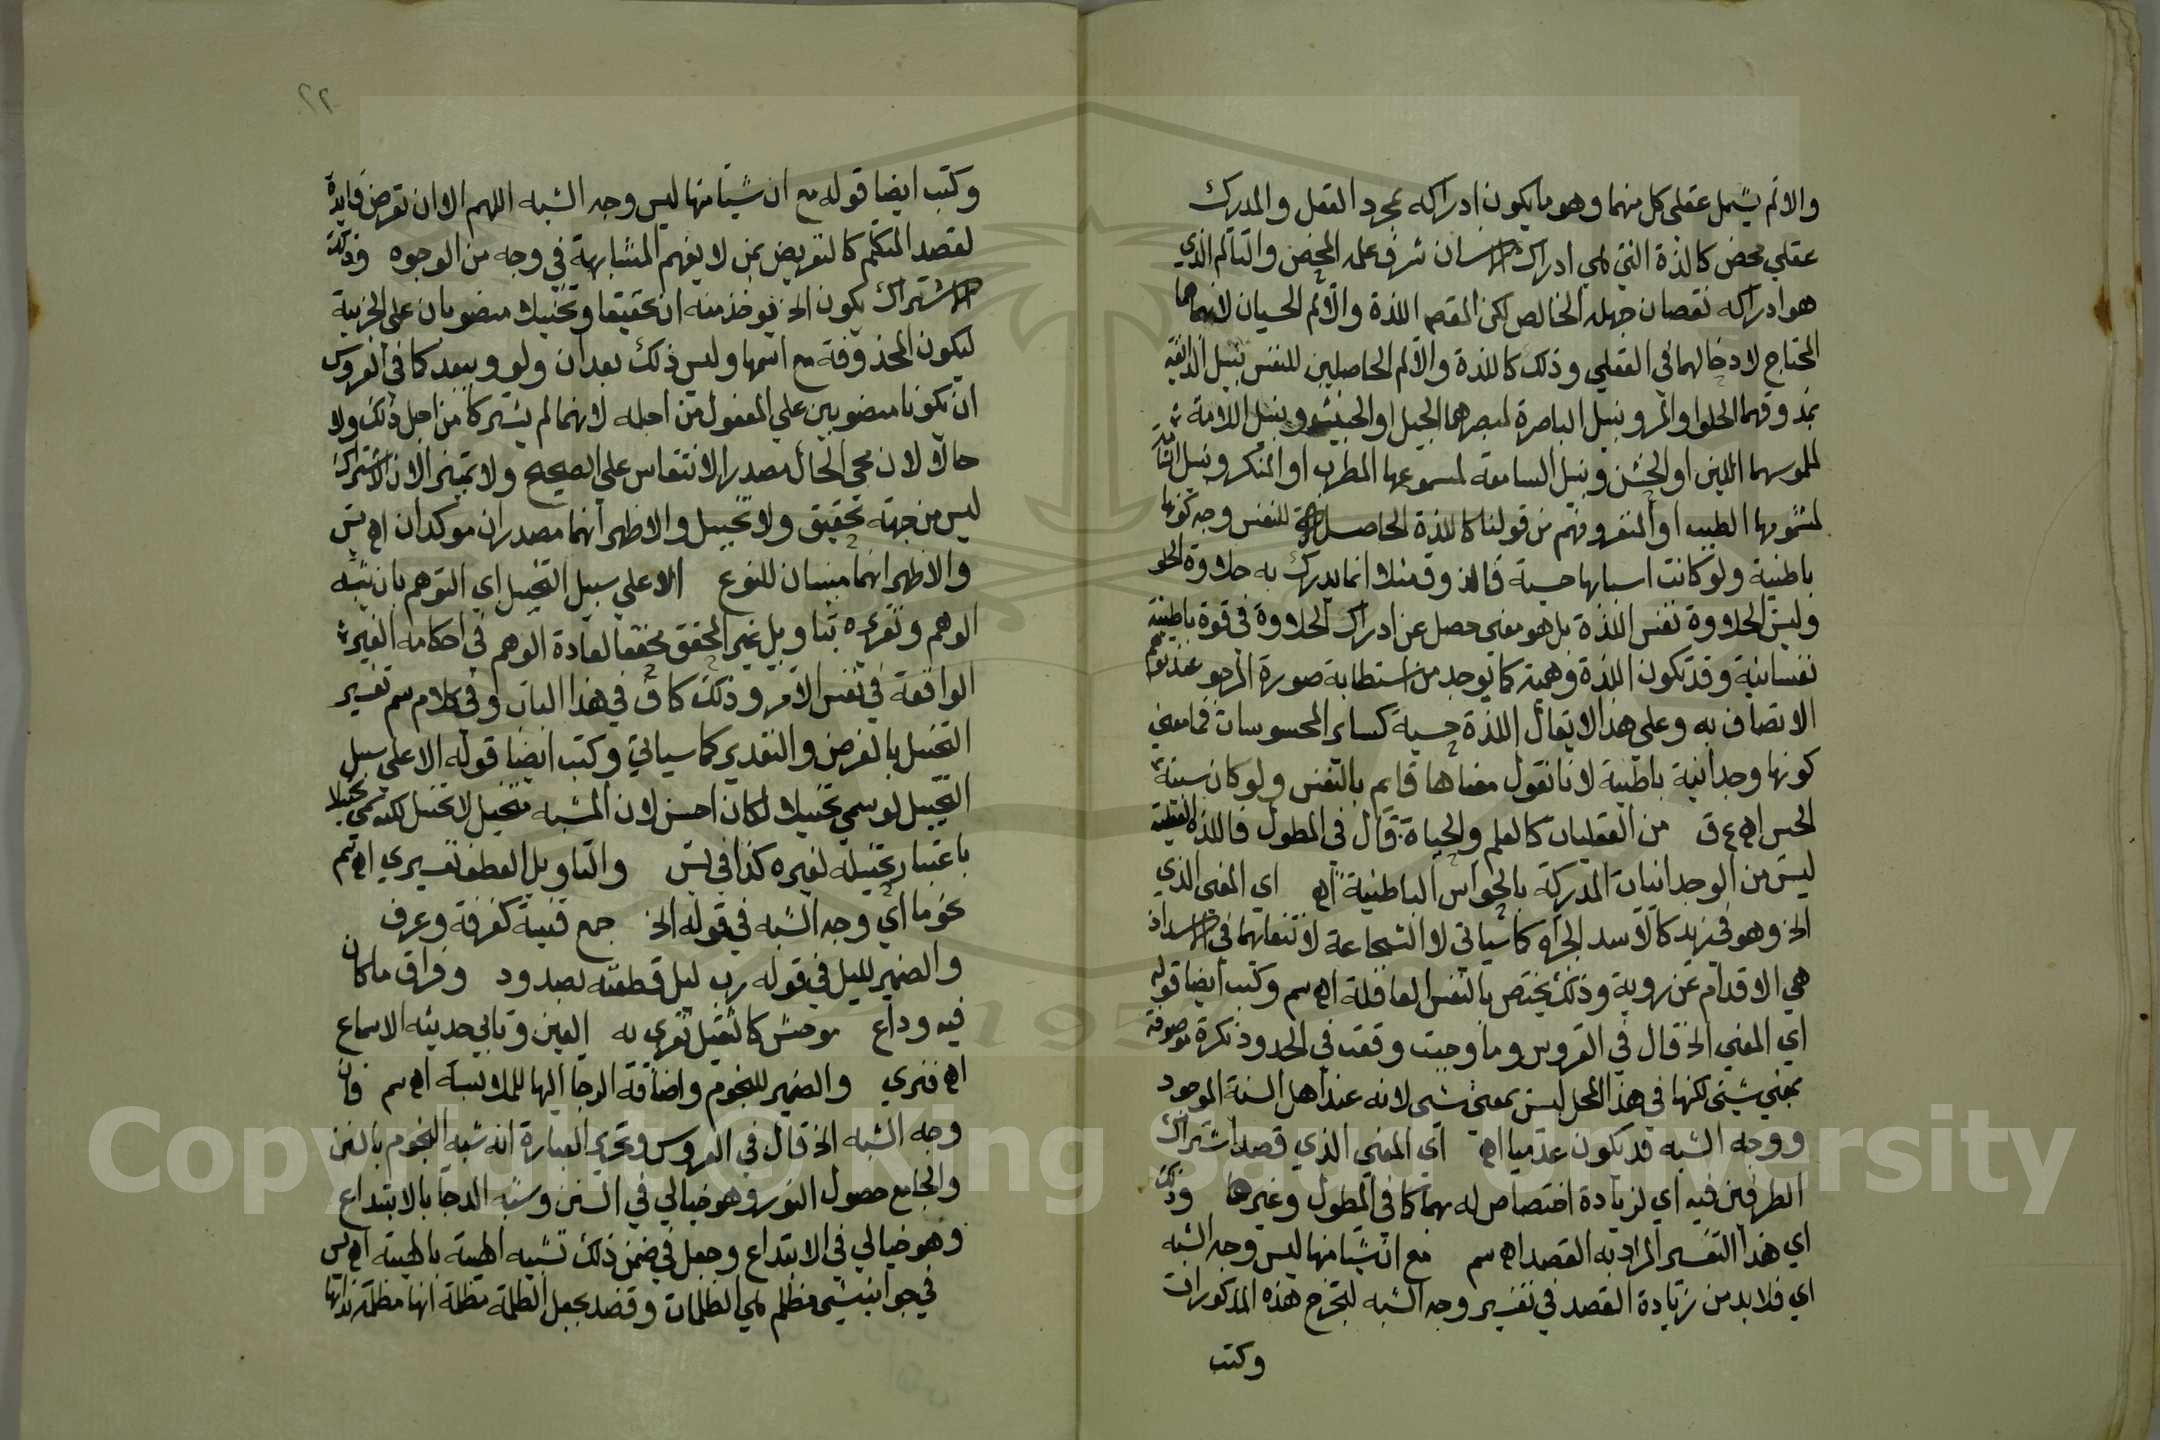 والالم يشمل عقلي كل منهما وهو ما يكون ادراكه بمجرد العقل والمدرك
عقلي محض كاللذة التي هي ادراك الانسان شرف علمه المحض والتالم الذي
هو ادراكه نقصان جهله الخالص لكن المقصم اللذة والالم الحسيان لانهما هما
المحتاج لادخالهما في العقلي وذلك كاللذة والالم الحاصلين للنفس بنيل الذائقة
بمذوقهما الحلو او المر وبنيل الباصرة لمبصرهما الجميل او الخبيث وبنيل اللامسة
لملموسهما اللين او الخشن وبنيل السامعة لمسموعها المطرب او المنكر وبنيل الشامة
لمشمومها الطيب او المنفر وفهم من قولنا كاللذة الحاصلة للنفس وجه كونها
باطنية ولو كانت اسبابها حسية فالذوق مثلا انما يدرك به حلاوة الحلو
وليس الحلاوة نفس اللذة بل هو معنى حصل عن ادراك الحلاوة في قوة باطنية
نفسانية وقد تكون اللذة وهمية كما توجد من استطابة صورة المرجو عند توهم
الاتصاف به وعلى هذا لا يقال اللذة حسية كساير المحسوسات فما معنى
كونها وجدانية باطنية لانا نقول معناها قايم بالنفس ولو كان سببه
الحس اه ع ق من العقليات كالعلم والحياة قال في المطول فاللذة العقلية
ليس من الوجدانيات المدركة بالحواس الباطنية اه اي المعنى الذي
الخ وهو في زيد كالاسد الجراه كما سياتي لا الشجاعة لانتفايها في الاسد اذ
هي الاقدام عن روية وذلك يختص بالنفس العاقلة اه سم وكتب ايضا قوله
اي المعنى الخ قال في العروس وما وحيث وقعت في الحدود نكرة موصوفة
بمعني شيئ لكنها في هذا المحل ليس بمعنى شي لانه عند اهل السنة الموجود
ووجه الشبه قد يكون عدميا اه اي المعنى الذي قصد اشتراك
الطرفين فيه اي لزيادة اختصاص له بهما كما في المطول وغيره وذلك
اي هذا التفسير المراد به القصد اه سم مع ان شيا منها ليس وجه الشبه
اي فلا بد من زيادة القصد في تفسير وجه الشبه لتخرج هذه المذكورات
وكتب
٢٢
وكتب ايضا قوله مع ان شيئا منها ليس وجه الشبه اللهم الا ان تعرض فايدة
لقصد المتكلم كالتعريض بمن لا يفهم المشابهة في وجه من الوجوه وذلك
الاشتراك يكون الخ يوخذ منه ان تحقيقا وتخييلا منصوبان على الخبرية
ليكون المحذوفة مع اسمها وليس ذلك بعد ان ولو وببعد كما في العروس
ان يكونا منصوبين على المفعول من اجله لانهما لم يشتركا من اجل ذلك ولا
حالا لان مجي الحال مصدرا لا ينقاس على الصحيح ولا تمييزا لان الاشتراك
ليس من جهة تحقيق ولا تخييل والاظهر انهما مصدران موكدان اه يس
والاظهر انهما مبينان للنوع الا على سبيل التخييل اي التوهم بان يثبته
الوهم ويقرره بتاويل غير المحقق محققا لعادة الوهم في احكامه الغير
الواقعة في نفس الامر وذلك كاف في هذا الباب وفي كلام سم تفسير
التخييل بالفرض والتقدير كما سياتي وكتب ايضا قوله الا على سبيل
التخييل لو سمي تخيلا لكان احسن لان المشبه متخيل لا تخييل لكنه سمي تخييلا
باعتبار تخييله لغيره كذا في يس والتاويل العطف تفسيري اه سم
نحو ما اي وجه الشبه في قوله الخ جمع قنية كغرفة وغرف
والضمير لليل في قوله رب ليل قطعته بصدود وفراق ما كان
فيه وداع موحش كالثقيل تقذى به العين وتابى حديثه الاسماع
اه فنري والضمير للنجوم واضافة الدجا اليها للملابسة اه سم فان
وجه الشبه الخ قال في العروس وتحرير العبارة انه شبه النجوم بالسنن
والجامع حصول النور وهو خيالي في السنن وشبه الدجا بالابتداع
وهو خيالي في الابتداع وجعل في ضمن ذلك تشبيه الهيئة بالهيئة اه يس
في جوانب شي مظلم هي الظلمات وقصد بجعل الظلمة مظلمة انها مظلمة بذاتها